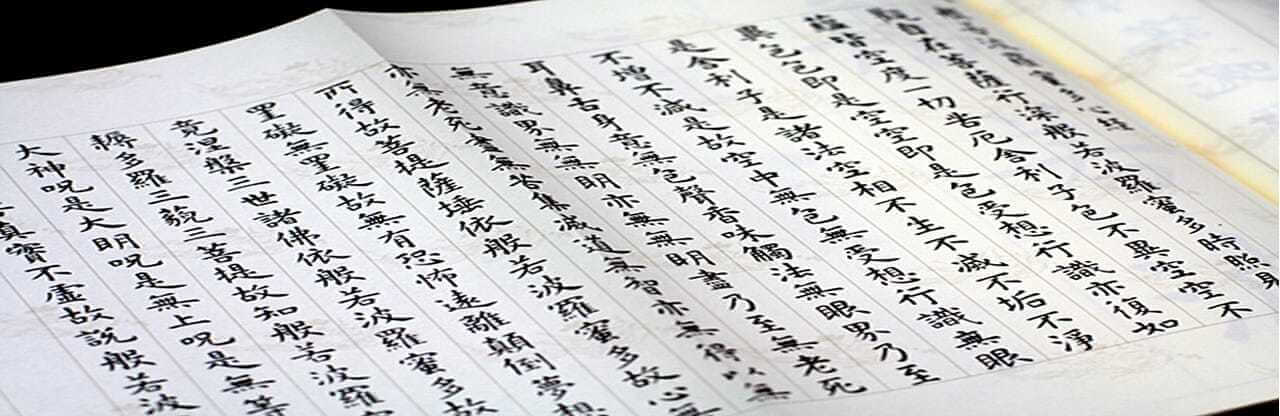 般若波羅蜜多心經
觀自在菩薩行深般若波羅蜜多時照見
蘊皆空度一切苦厄舍利子色不異空空不
異色色即是空空即是色受想行識亦復如
是舍利子是諸法空相不生不滅不垢不淨
不增不減是故空中無色無受想行識無眼
耳鼻舌身意無色聲香味觸法無眼界乃至
無意識界無無明亦無無明盡乃至無老死
亦無老死盡無苦集滅道無智亦無得以無
所得故菩提薩埵依般若波羅蜜多故心無
罣礙無罣礙故無有恐怖遠離顛倒夢想
竟涅槃三世諸佛依般若波羅蜜多故
耨多羅三藐三菩提故知般若波羅
大神呪是大明呪是無上呪是無等
真實不虛故說般若波